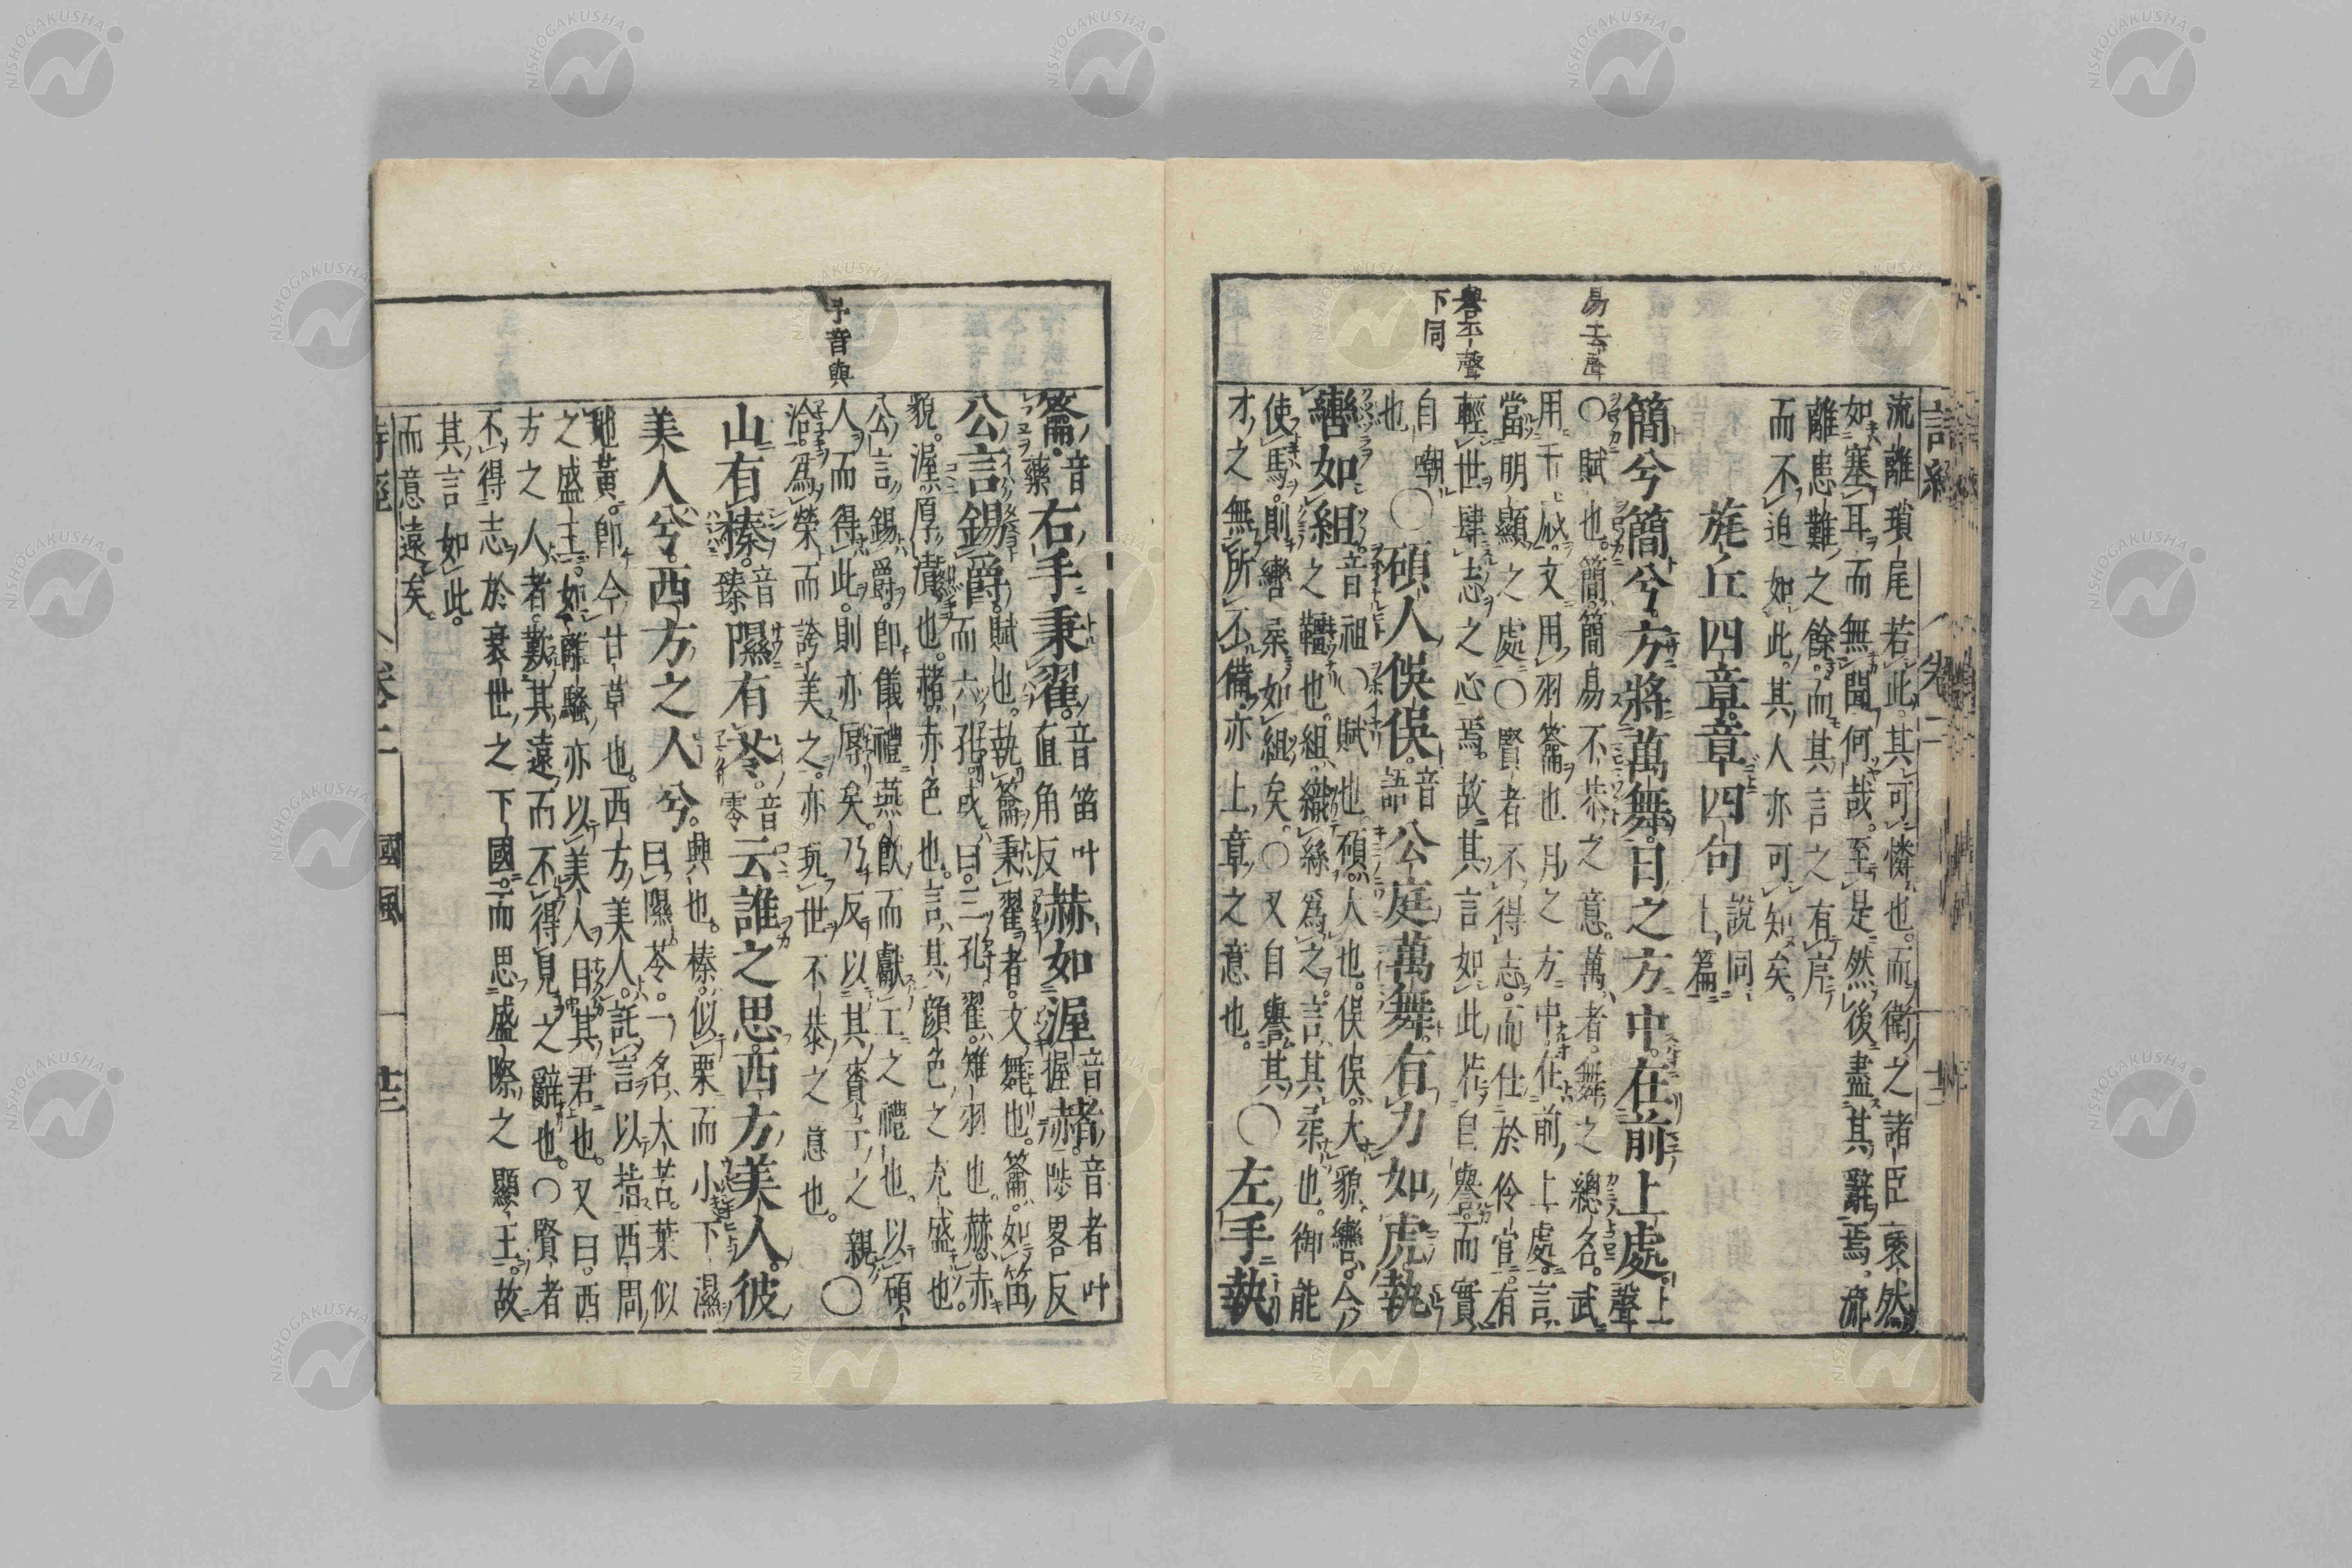 易去聲
譽平聲
下同
流離瑣尾若此其可憐也而衛之諸臣褎然
如塞耳而無聞何哉至是然後盡其辭焉流
離患難之餘而其言之有序
而不迫如此其人亦可知矣
旄丘四章章四句 說同上篇
簡兮簡兮方將萬舞日之方中在前上處 上聲
○賦也簡簡易不恭之意萬者舞之總名武
用干戚文用羽籥也日之方中在前上處言
當明顯之處○賢者不得志而仕於伶官有
輕世肆志之心焉故其言如此若自譽而實
自嘲也
○碩人俁俁 音語 公庭萬舞有力如虎執
轡如組 音祖 ○賦也碩大也俁俁大貌轡今
之韁也組織絲為之言其柔也御能
使馬則轡柔如組矣○又自譽其
才之無所不備亦上章之意也 ○左手執
予音與
籥 音藥 右手秉翟 音笛叶直角反 赫如渥 音握 赭 音者叶陟畧反
公言錫爵 賦也執籥秉翟者文舞也籥如笛
而六孔或曰三孔翟雉羽也赫赤
貌渥厚漬也赭赤色也言其顏色之充盛也
公言錫爵即儀禮燕飲而獻工之禮也以碩
人而得此則亦辱矣乃反以其賚予之親
洽為榮而誇美之亦玩世不恭之意也 ○
山有榛 音臻 隰有苓 音零 云誰之思西方美人彼
美人兮西方之人兮 興也榛似栗而小下濕
曰隰苓一名大苦葉似
地黃即今甘草也西方美人託言以指西周
之盛王如離騷亦以美人目其君也又曰西
方之人者歎其遠而不得見之辭也○賢者
不得志於衰世之下國而思盛際之顯王故
其言如此
而意遠矣
詩經 卷二 國風 十三